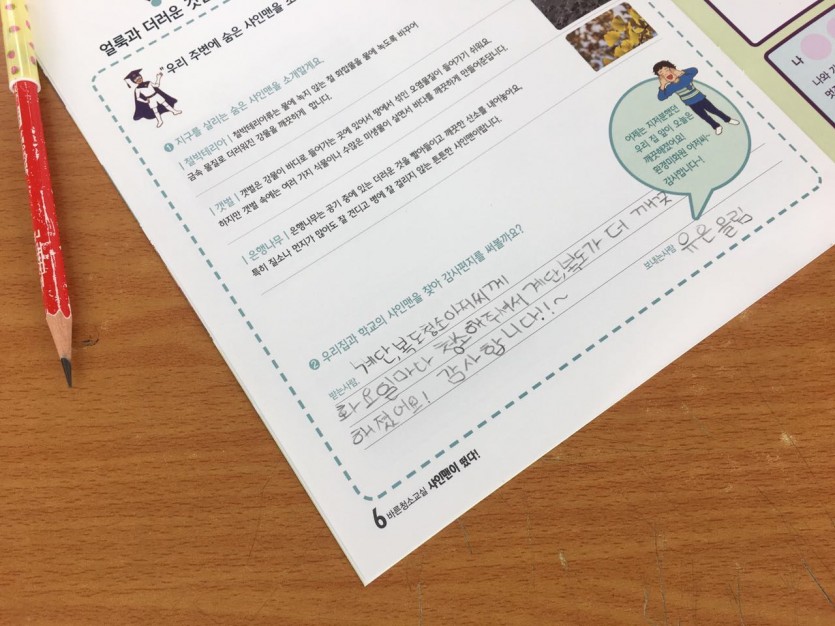 얼룩과 더러운 것
우리 주변에 숨은 샤인맨을 소
❶ 지구를 살리는 숨은 샤인맨을 소개할게요.
| 철박테리아 | 철박테리아류는 물에 녹지 않는 철 화합물을 물에 녹도록 바꾸어
금속 물질로 더러워진 강물을 깨끗하게 합니다.
| 갯벌 | 갯벌은 강물이 바다로 들어가는 곳에 있어서 땅에서 섞인 오염물질이 들어가기 쉬워요.
하지만 갯벌 속에는 여러 가지 식물이나 수많은 미생물이 살면서 바다를 깨끗하게 만들어준답니다.
| 은행나무 | 은행나무는 공기 중에 있는 더러운 것을 빨아들이고 깨끗한 산소를 내어놓아요.
특히 질소나 먼지가 많아도 잘 견디고 병에 잘 걸리지 않는 튼튼한 샤인맨이랍니다.
어제는 지저분했던
우리 집 앞이 오늘은
깨끗해졌어요!
환경미화원 아저씨~
감사합니다~!
❷ 우리집과 학교의 샤인맨을 찾아 감사편지를 써볼까요?
받는사람. 계단,복도청소아저씨께
화요일마다 청소해주셔서 계단,복도가 더 깨끗
해졌어요! 감사합니다!!~
보내는사람 유은 올림
6 바른청소교실 샤인맨이 떴다!
나